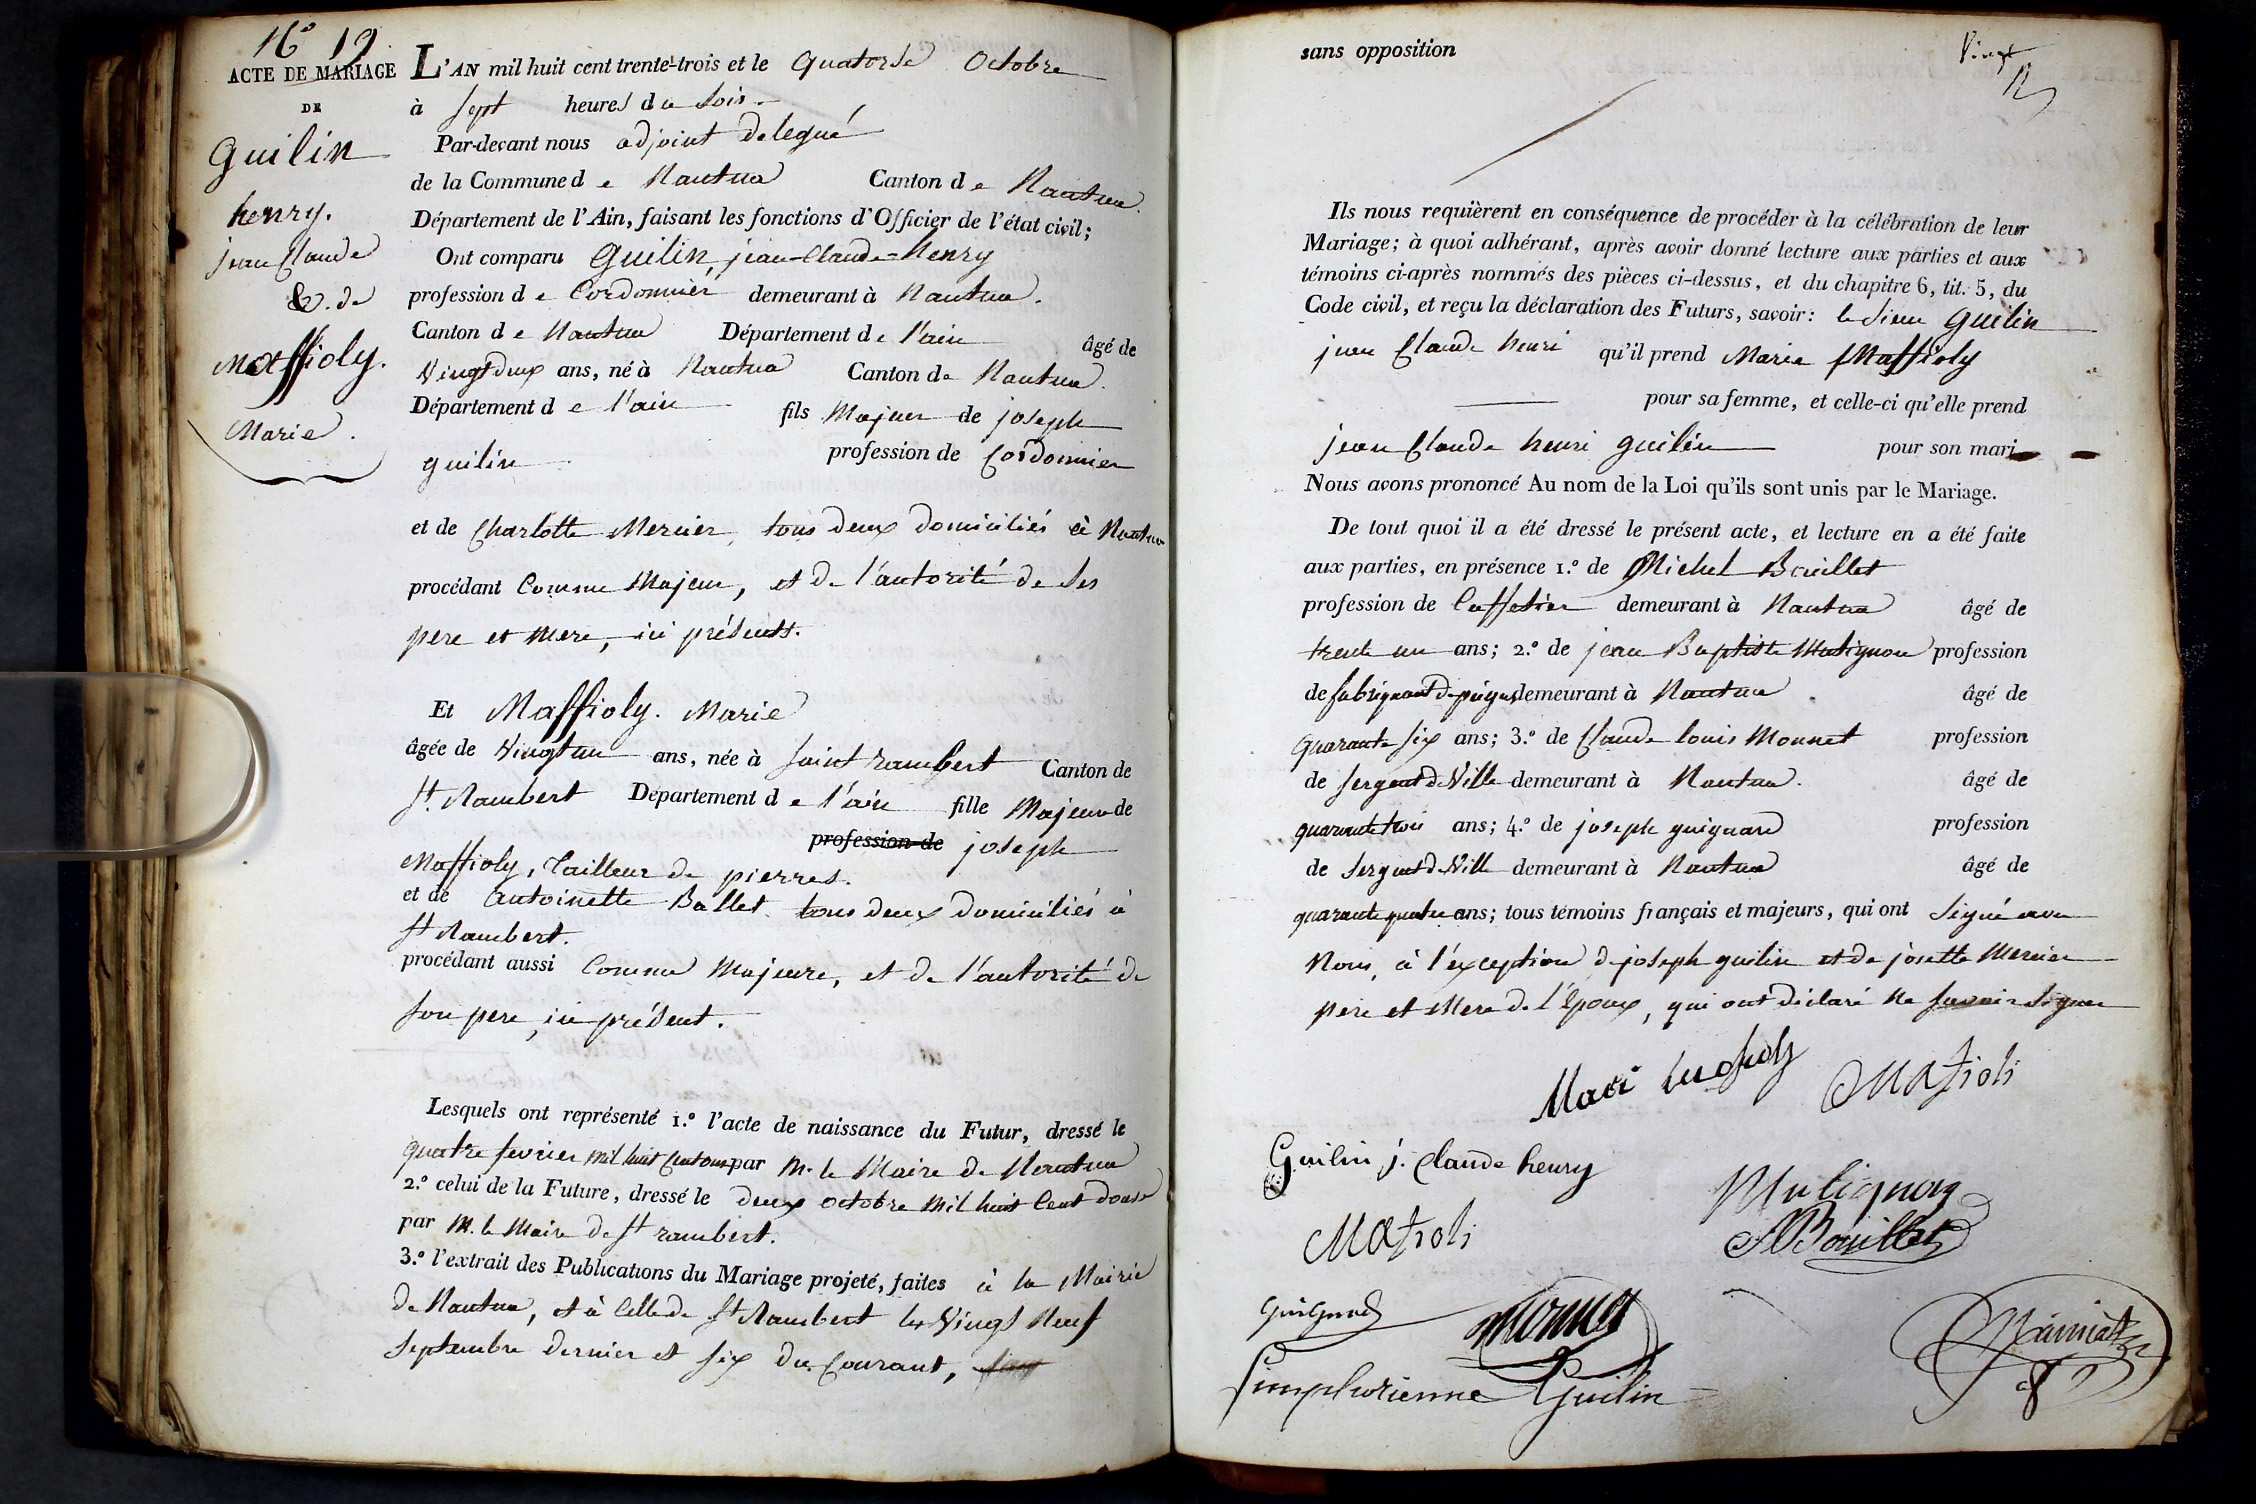 N° 19
ACTE DE MARIAGE
DE
Guilin
henry.
jean Claude
&. de
Maffioly.
Marie.
L'AN mil huit cent trente-trois et le quatorse Octobre
à sept heures du soir
Par-devant nous adjoint delegué
de la Commune de Nantua Canton de Nantua.
Département de l'Ain, faisant les fonctions d'Officier de l'état civil;
Ont comparu Guilin, jean-Claude-henry
profession de Cordonnier demeurant à Nantua.
Canton de Nantua Département de l'ain âgé de
Vingt deux ans, né à Nantua Canton de Nantua.
Département de l'ain fils Majeur de joseph
guilin profession de Cordonnier
et de Charlotte Mercier, tous deux domiciliés à Nantua
procédant Comme Majeur, et de l'autorité de ses
pere et mere, ici présents.
Et Maffioly. Marie
âgée de Vingt un ans, née à saint rambert Canton de
St Rambert Département de l'ain fille Majeure de
profession de joseph
Maffioly, Tailleur de pierres.
et de Antoinette Ballet tous deux domiciliés à
St Rambert.
procédant aussi Comme Majeure, et de l'autorité de
son pere, ici présent.
Lesquels ont représenté 1.° l'acte de naissance du Futur, dressé le
quatre fevrier mil huit Cent onze par M. le Maire de Nantua
2.° celui de la Future, dressé le deux octobre mil huit Cent douse
par M. le Maire de St rambert.
3.° l'extrait des Publications du Mariage projeté, faites à la Mairie
de Nantua, et à Celle de St Rambert les Vingt Neuf
septembre dernier et six du Courant,
sans opposition
Vingt
Ils nous requièrent en conséquence de procéder à la célébration de leur
Mariage; à quoi adhérant, après avoir donné lecture aux parties et aux
témoins ci-après nommés des pièces ci-dessus, et du chapitre 6, tit. 5, du
Code civil, et reçu la déclaration des Futurs, savoir: le sieur Guilin
jean Claude henri qu'il prend Marie Maffioly
pour sa femme, et celle-ci qu'elle prend
jean Claude henri guilin pour son mari
Nous avons prononcé Au nom de la Loi qu'ils sont unis par le Mariage.
De tout quoi il a été dressé le présent acte, et lecture en a été faite
aux parties, en présence 1.° de Michel Bouillet
profession de Caffetier demeurant à Nantua âgé de
trente un ans; 2.° de jean Baptiste Mutignon profession
de fabriquant de peignes demeurant à Nantua âgé de
quarante six ans; 3.° de Claude louis Monnet profession
de sergent de Ville demeurant à Nantua. âgé de
quarante trois ans; 4.° de joseph guignard profession
de sergent de Ville demeurant à Nantua âgé de
quarante quatre ans; tous témoins français et majeurs, qui ont signé avec
Nous, à l'exception de joseph guilin et de josette Mercier
pere et Mere de l'époux, qui ont déclaré ne savoir signer
Mafioli
Guilin j. Claude henry
Mutignon
Mafioli
Bouillet
Guignard
Monnet
Simphorienne Guilin